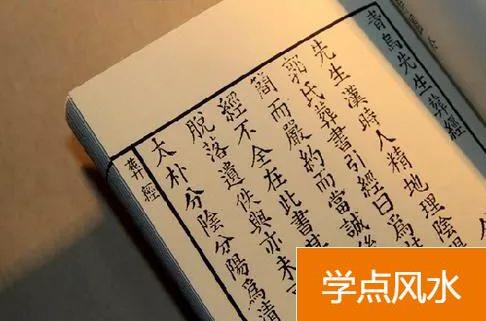 青烏先生葬經
先生漢時人精地理陰陽
郭氏葬書引經曰為
簡而嚴約而當誠後
經不全在此書其
脫落遺佚與亦未可
太朴分陰分陽為清
葬經
学点风水